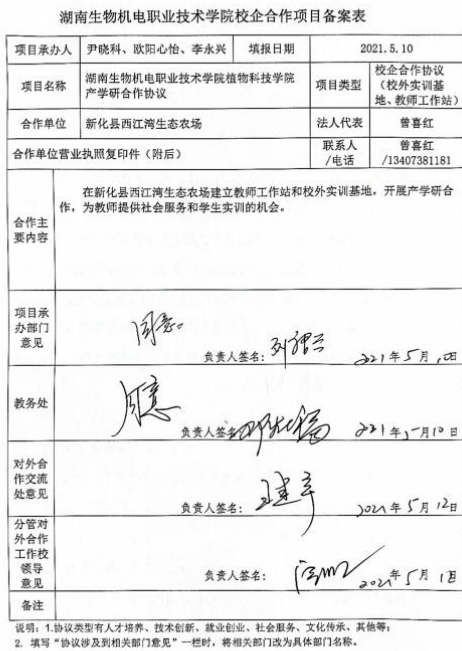 湖南生物机电职业技术学院校企合作项目备案表
项目承办人 尹晓科、欧阳心怡、李永兴 填报日期 2021.5.10
项目名称 湖南生物机电职业技术学院植物科技学院产学研合作协议 项目类型 校企合作协议(校外实训基地、教师工作站)
合作单位 新化县西江湾生态农场 法人代表 曾喜红
合作单位营业执照复印件(附后) 联系人/电话 曾喜红/13407381181
合作主要内容
在新化县西江湾生态农场建立教师工作站和校外实训基地,开展产学研合
作,为教师提供社会服务和学生实训的机会。
项目承办部门意见
同意。
负责人签名: 2021年5月10日
教务处
同意
负责人签名 2021年5月10日
对外合作交流处意见
负责人签名: 2021年5月12日
分管对外合作工作校领导意见
负责人签名: 2021年5月1日
备注
说明:1.协议类型有人才培养、技术创新、就业创业、社会服务、文化传承、其他等;
2. 填写“协议涉及到相关部门意见”一栏时,将相关部门改为具体部门名称。